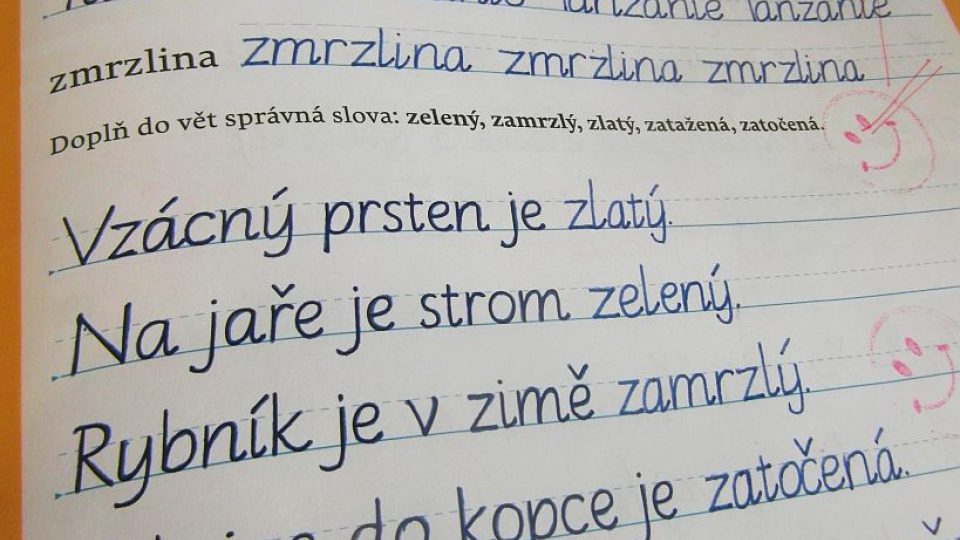 zmrzlina zmrzlina zmrzlina zmrzlina
Doplň do vět správná slova: zelený, zamrzlý, zlatý, zatažená, zatočená.
Vzácný prsten je zlatý.
Na jaře je strom zelený.
Rybník je v zimě zamrzlý.
do kopce je zatočená.